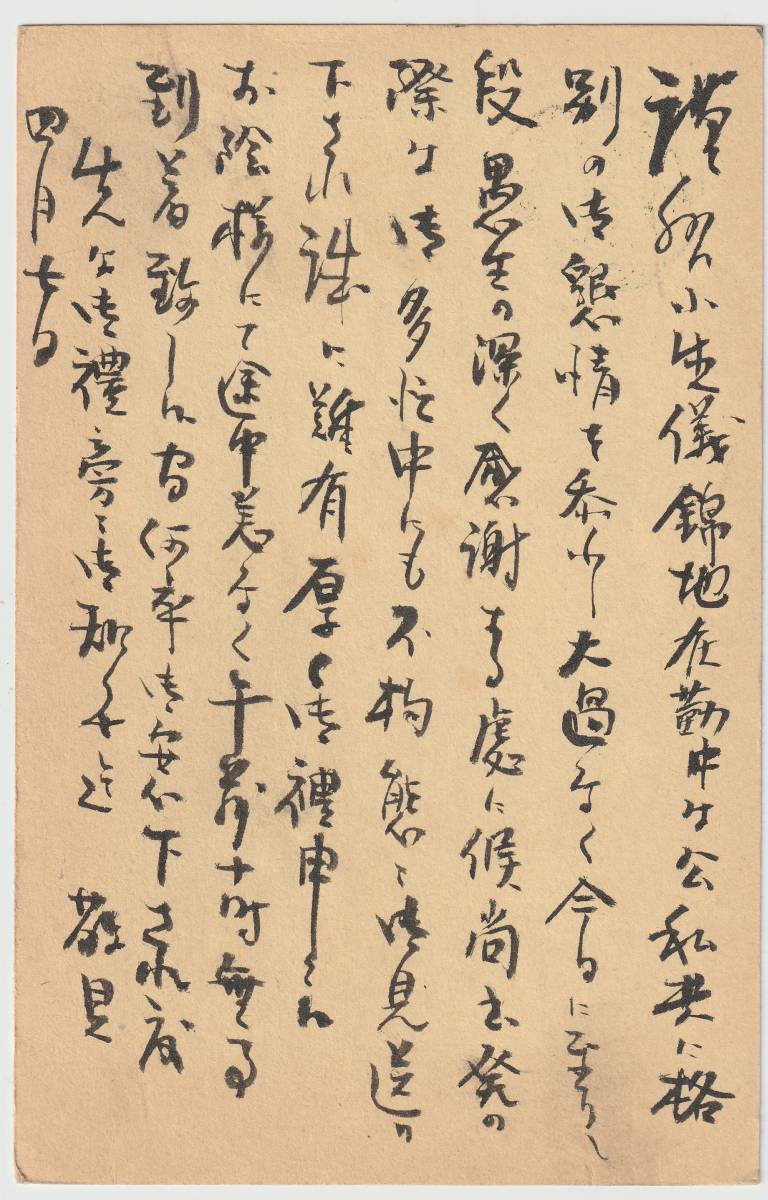 謹啓小生儀錦地在勤中は公私共に格
別の御懇情を忝ふし大過なく今日に至りし
段愚生の深く感謝する處に候尚出発の
際は御多忙中にも不拘態々御見送り
下され誠に難有厚く御禮申上候
お陰様にて途中恙なく午前十時無事
到着致し候間何卒御安心下され度
先は御禮旁々御知らせ迄 敬具
四月七日